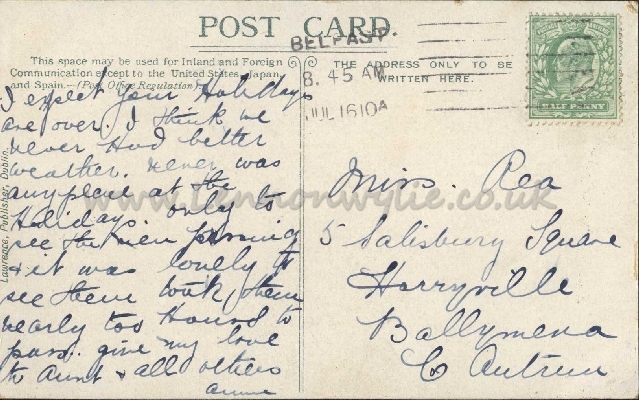 POST CARD.
This space may be used for Inland and Foreign
Communication except to the United States, Japan,
and Spain.—(Post Office Regulation).
THE ADDRESS ONLY TO BE
WRITTEN HERE.
BELFAST.
8. 45 AM
JUL 16 10
HALF PENNY
Lawrence, Publisher, Dublin.
I expect your Holidays
are over. I think we
never had better
weather. never was
anyplace at the
Holidays. only to
see the men passing
& it was lovely to
see them took them
nearly too Hours to
pass. give my love
to Aunt & all others
Annie
Miss. Rea
5 Salisbury Square
Harryville
Ballymena
Co Antrim
www.lennonwylie.co.uk